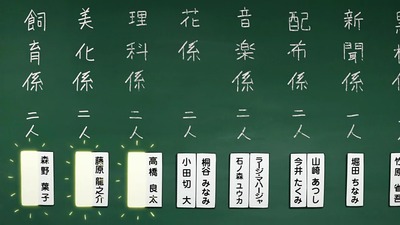 新聞係 一人
堀田 ちなみ
配布係 二人
山崎 あつし
今井 たくみ
音楽係 二人
ラージ・マハージャ
石ノ森 ユウカ
花係 二人
桐谷 みなみ
小田切 大
理科係 二人
高橋 良太
美化係 二人
藤原 龍之介
飼育係 二人
森野 葉子